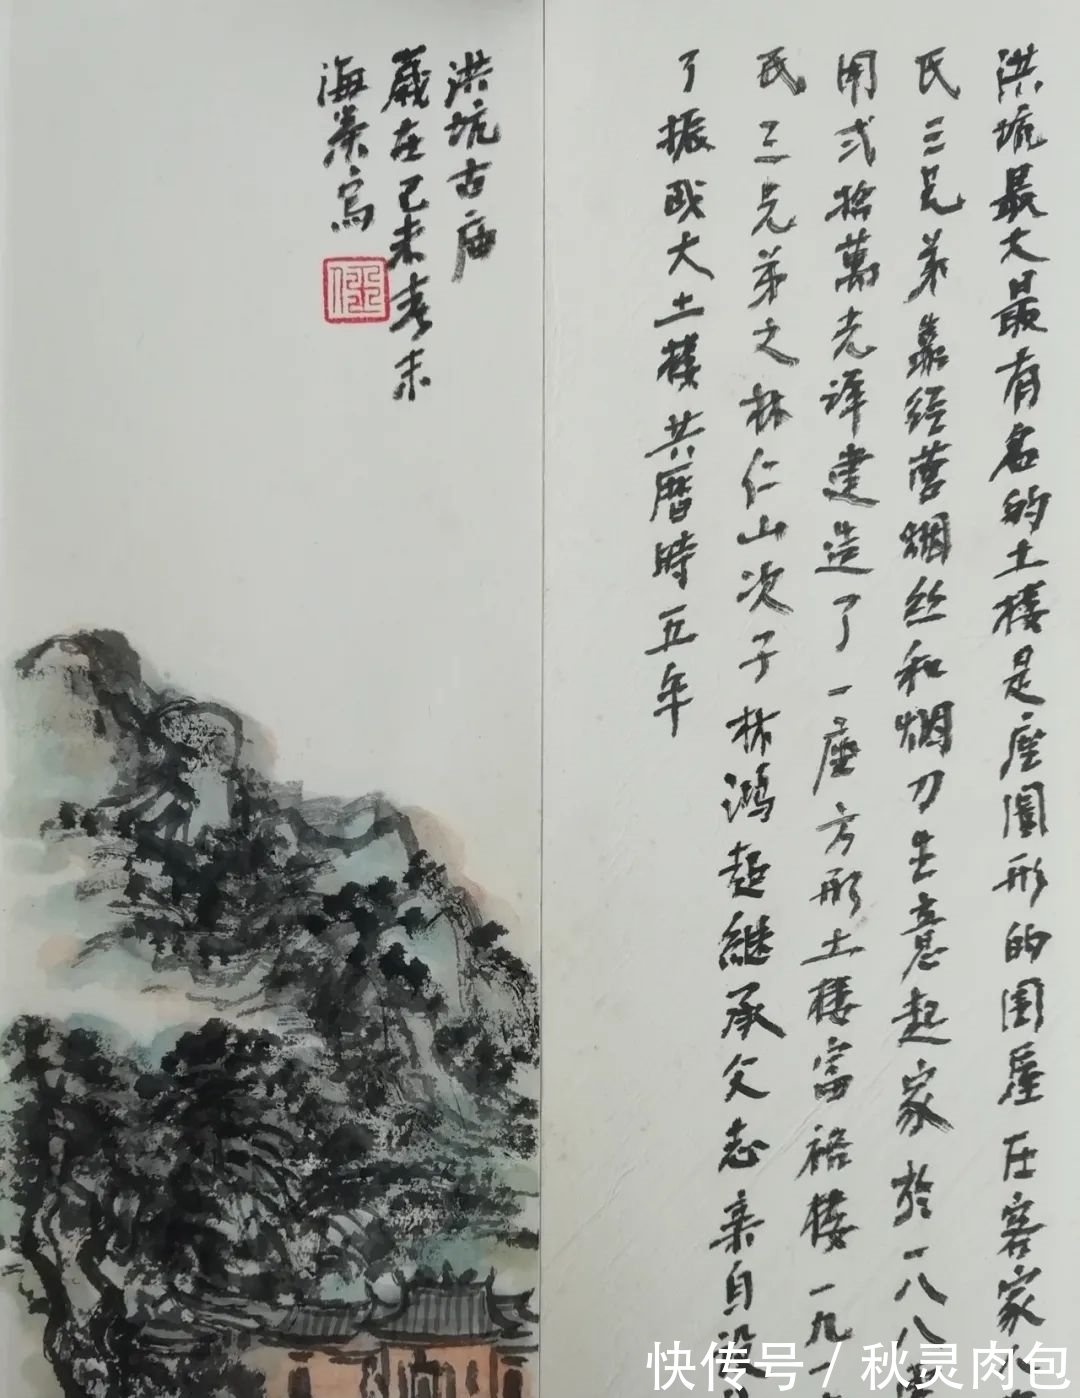 洪坑最大最有名的土楼是座圓形的围屋在客家
氏三兄弟靠经营烟丝和烟刀生意起家於一八八
用弍拾萬光洋建造了一座方形土楼富裕楼一九一
氏三兄弟之林仁山次子林鸿超継承父志亲自設
了振成大土楼共曆時五年
洪坑古庙
歲在己未春末
海 写
快传号/秋灵肉包